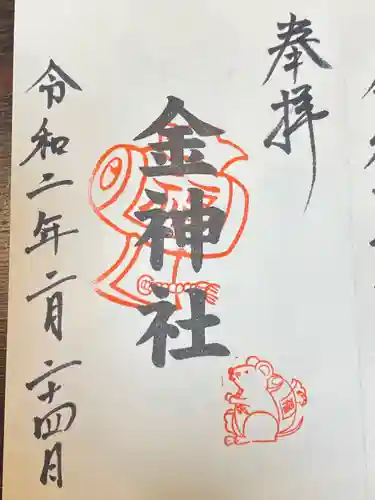 奉拝
金神社
令和二年二月二十四日